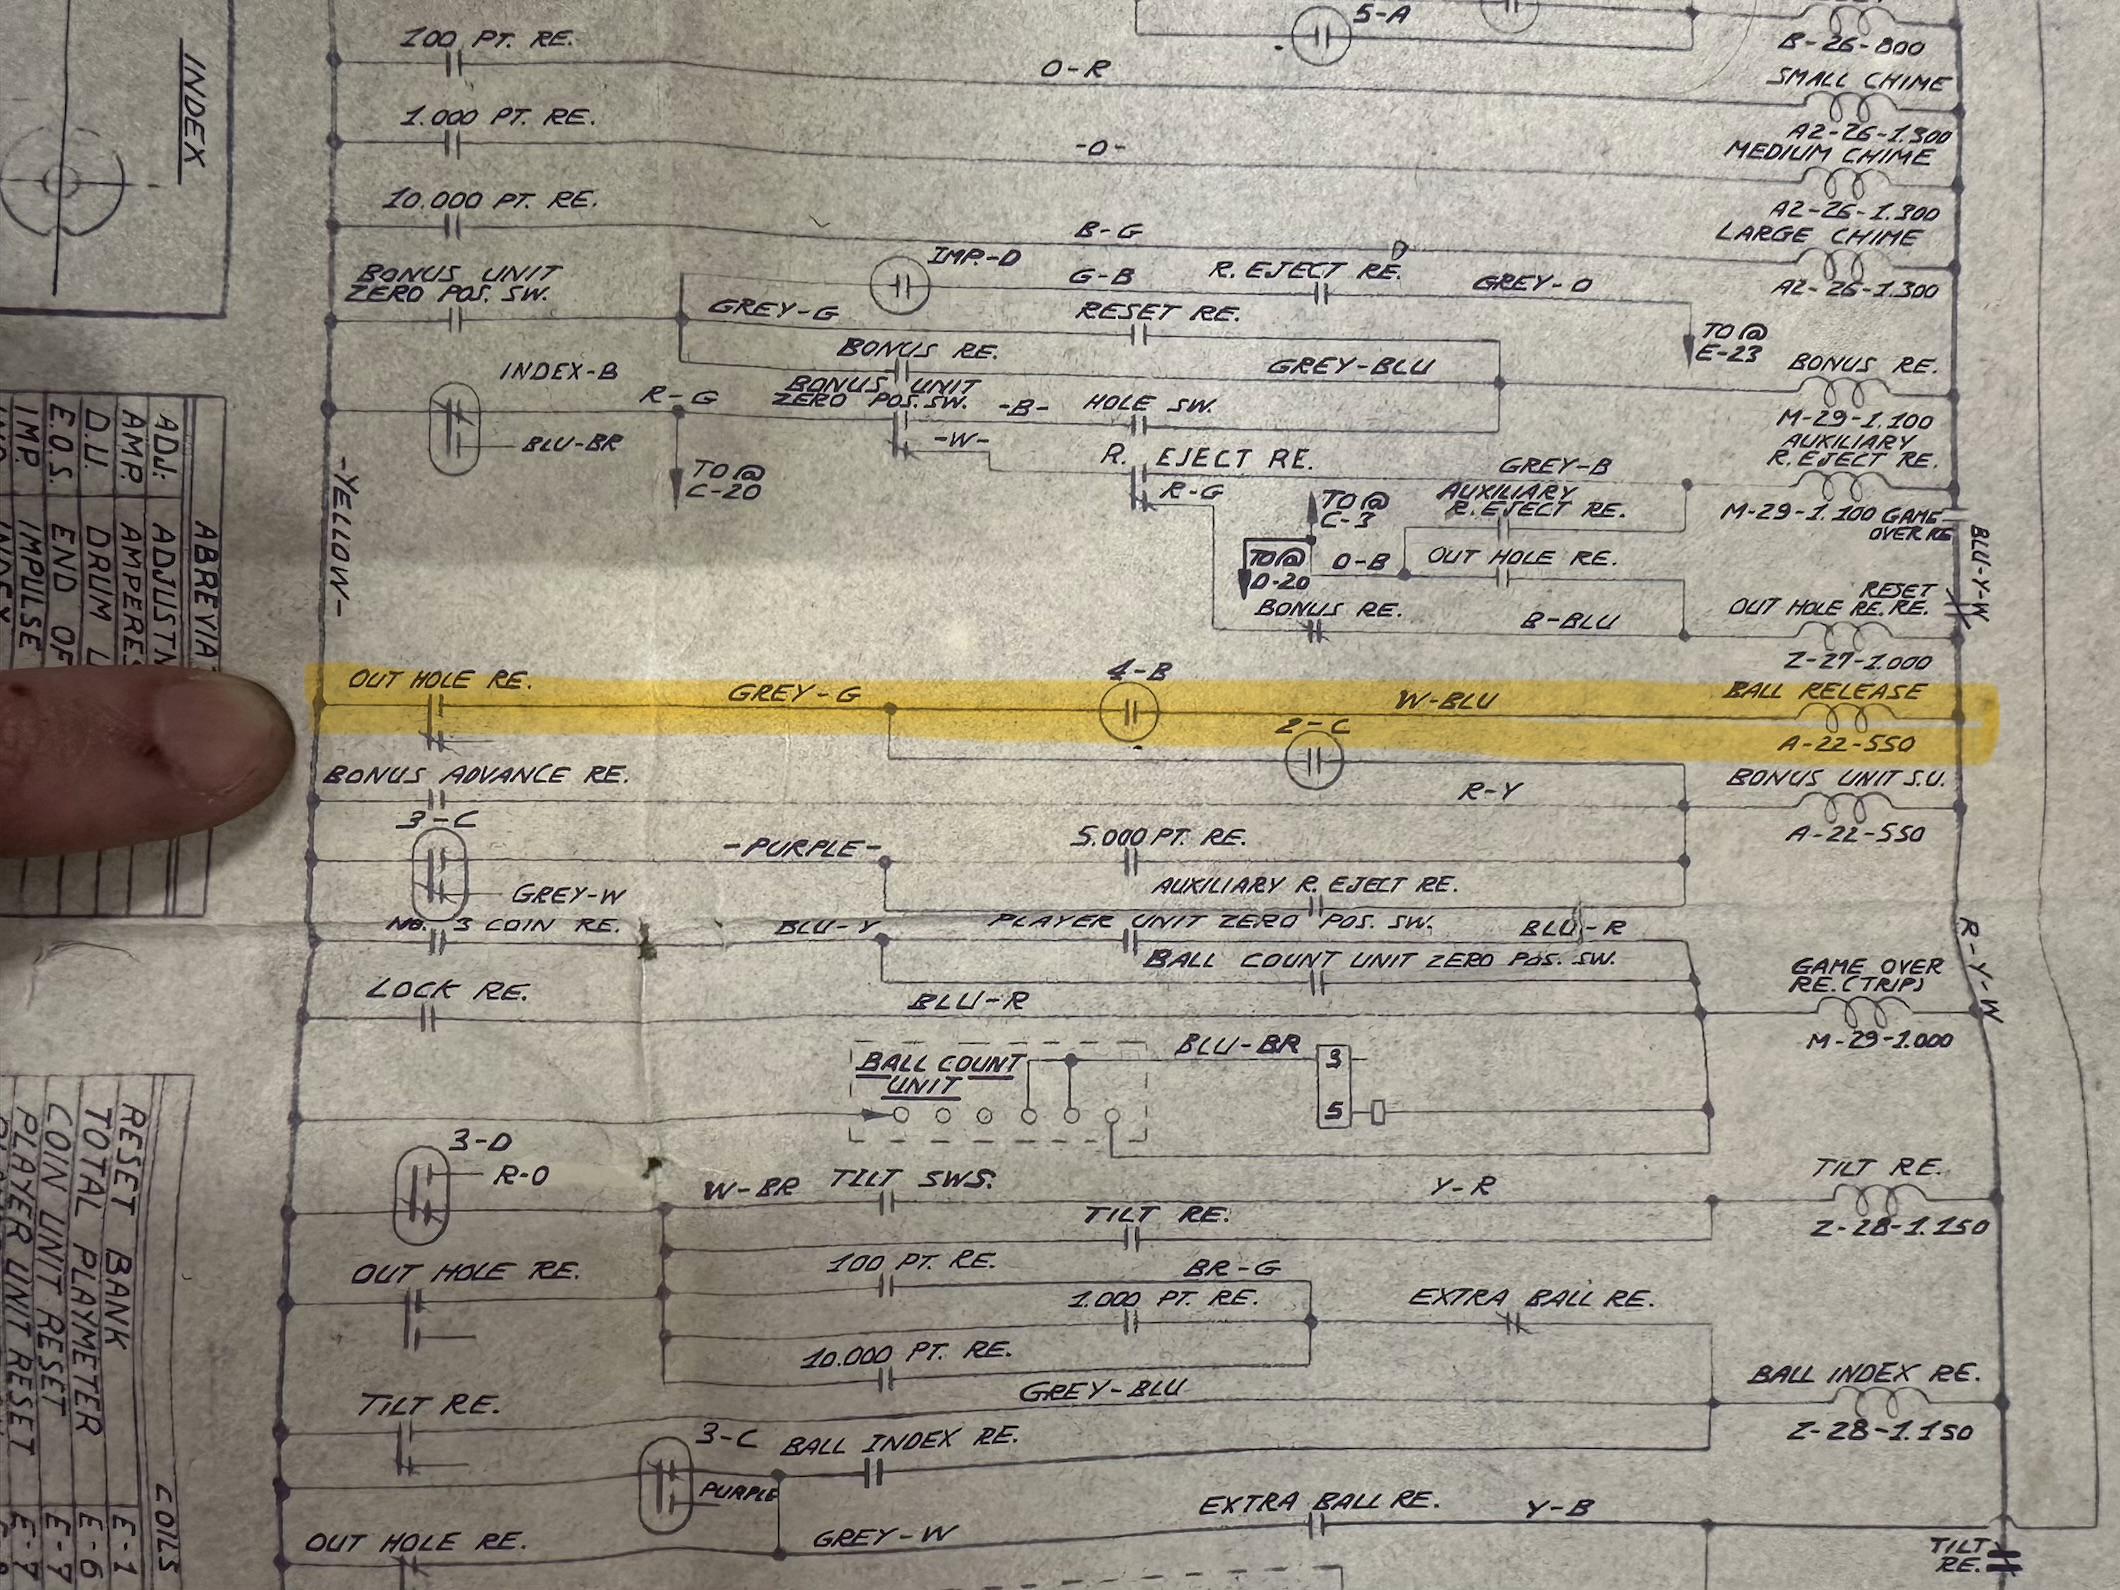 5-A
B-26-800
100 PT. RE.
O-R
SMALL CHIME
A2-26-1.300
1.000 PT. RE.
-O-
MEDIUM CHIME
A2-26-1.300
10.000 PT. RE.
B-G
LARGE CHIME
A2-26-1.300
BONUS UNIT
ZERO POS. SW.
IMP.-D
G-B
R. EJECT RE.
GREY-O
TO @
E-23
GREY-G
RESET RE.
BONUS RE.
GREY-BLU
BONUS RE.
M-29-1.100
INDEX-B
BLU-BR
R-G
TO @
C-20
BONUS UNIT
ZERO POS. SW.
-B-
HOLE SW.
-W-
R. EJECT RE.
R-G
GREY-B
AUXILIARY
R. EJECT RE.
M-29-1.100
GAME
OVER RE
TO @
C-3
AUXILIARY
R. EJECT RE.
TO @
D-20
O-B
OUT HOLE RE.
BLU-Y-W
RESET
RE.
OUT HOLE RE.
Z-27-1.000
BONUS RE.
B-BLU
-YELLOW-
OUT HOLE RE.
GREY-G
4-B
W-BLU
BALL RELEASE
A-22-550
2-C
BONUS ADVANCE RE.
R-Y
BONUS UNIT S.U.
A-22-550
3-C
GREY-W
-PURPLE-
5.000 PT. RE.
AUXILIARY R. EJECT RE.
NO. 3 COIN RE.
BLU-Y
PLAYER UNIT ZERO POS. SW.
BLU-R
BALL COUNT UNIT ZERO POS. SW.
R-Y-W
LOCK RE.
BLU-R
GAME OVER
RE. (TRIP)
M-29-1.000
BALL COUNT
UNIT
BLU-BR
3
5
3-D
R-O
W-BR
TILT SWS.
Y-R
TILT RE.
Z-28-1.150
TILT RE.
OUT HOLE RE.
100 PT. RE.
BR-G
1.000 PT. RE.
EXTRA BALL RE.
10.000 PT. RE.
TILT RE.
GREY-BLU
BALL INDEX RE.
Z-28-1.150
3-C
PURPLE
BALL INDEX RE.
OUT HOLE RE.
GREY-W
EXTRA BALL RE.
Y-B
TILT
RE.
INDEX
ABREVIA
ADJ. ADJUSTN
AMP. AMPERES
D.U. DRUM U
E.O.S. END OF
IMP. IMPULSE
COILS
RESET BANK E-1
TOTAL PLAYMETER E-6
COIN UNIT RESET E-7
PLAYER UNIT RESET E-7